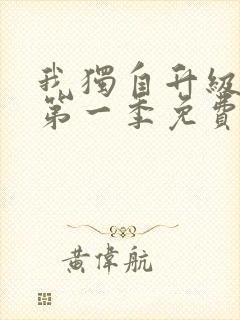 我獨自升級
第一季免費
黃偉航